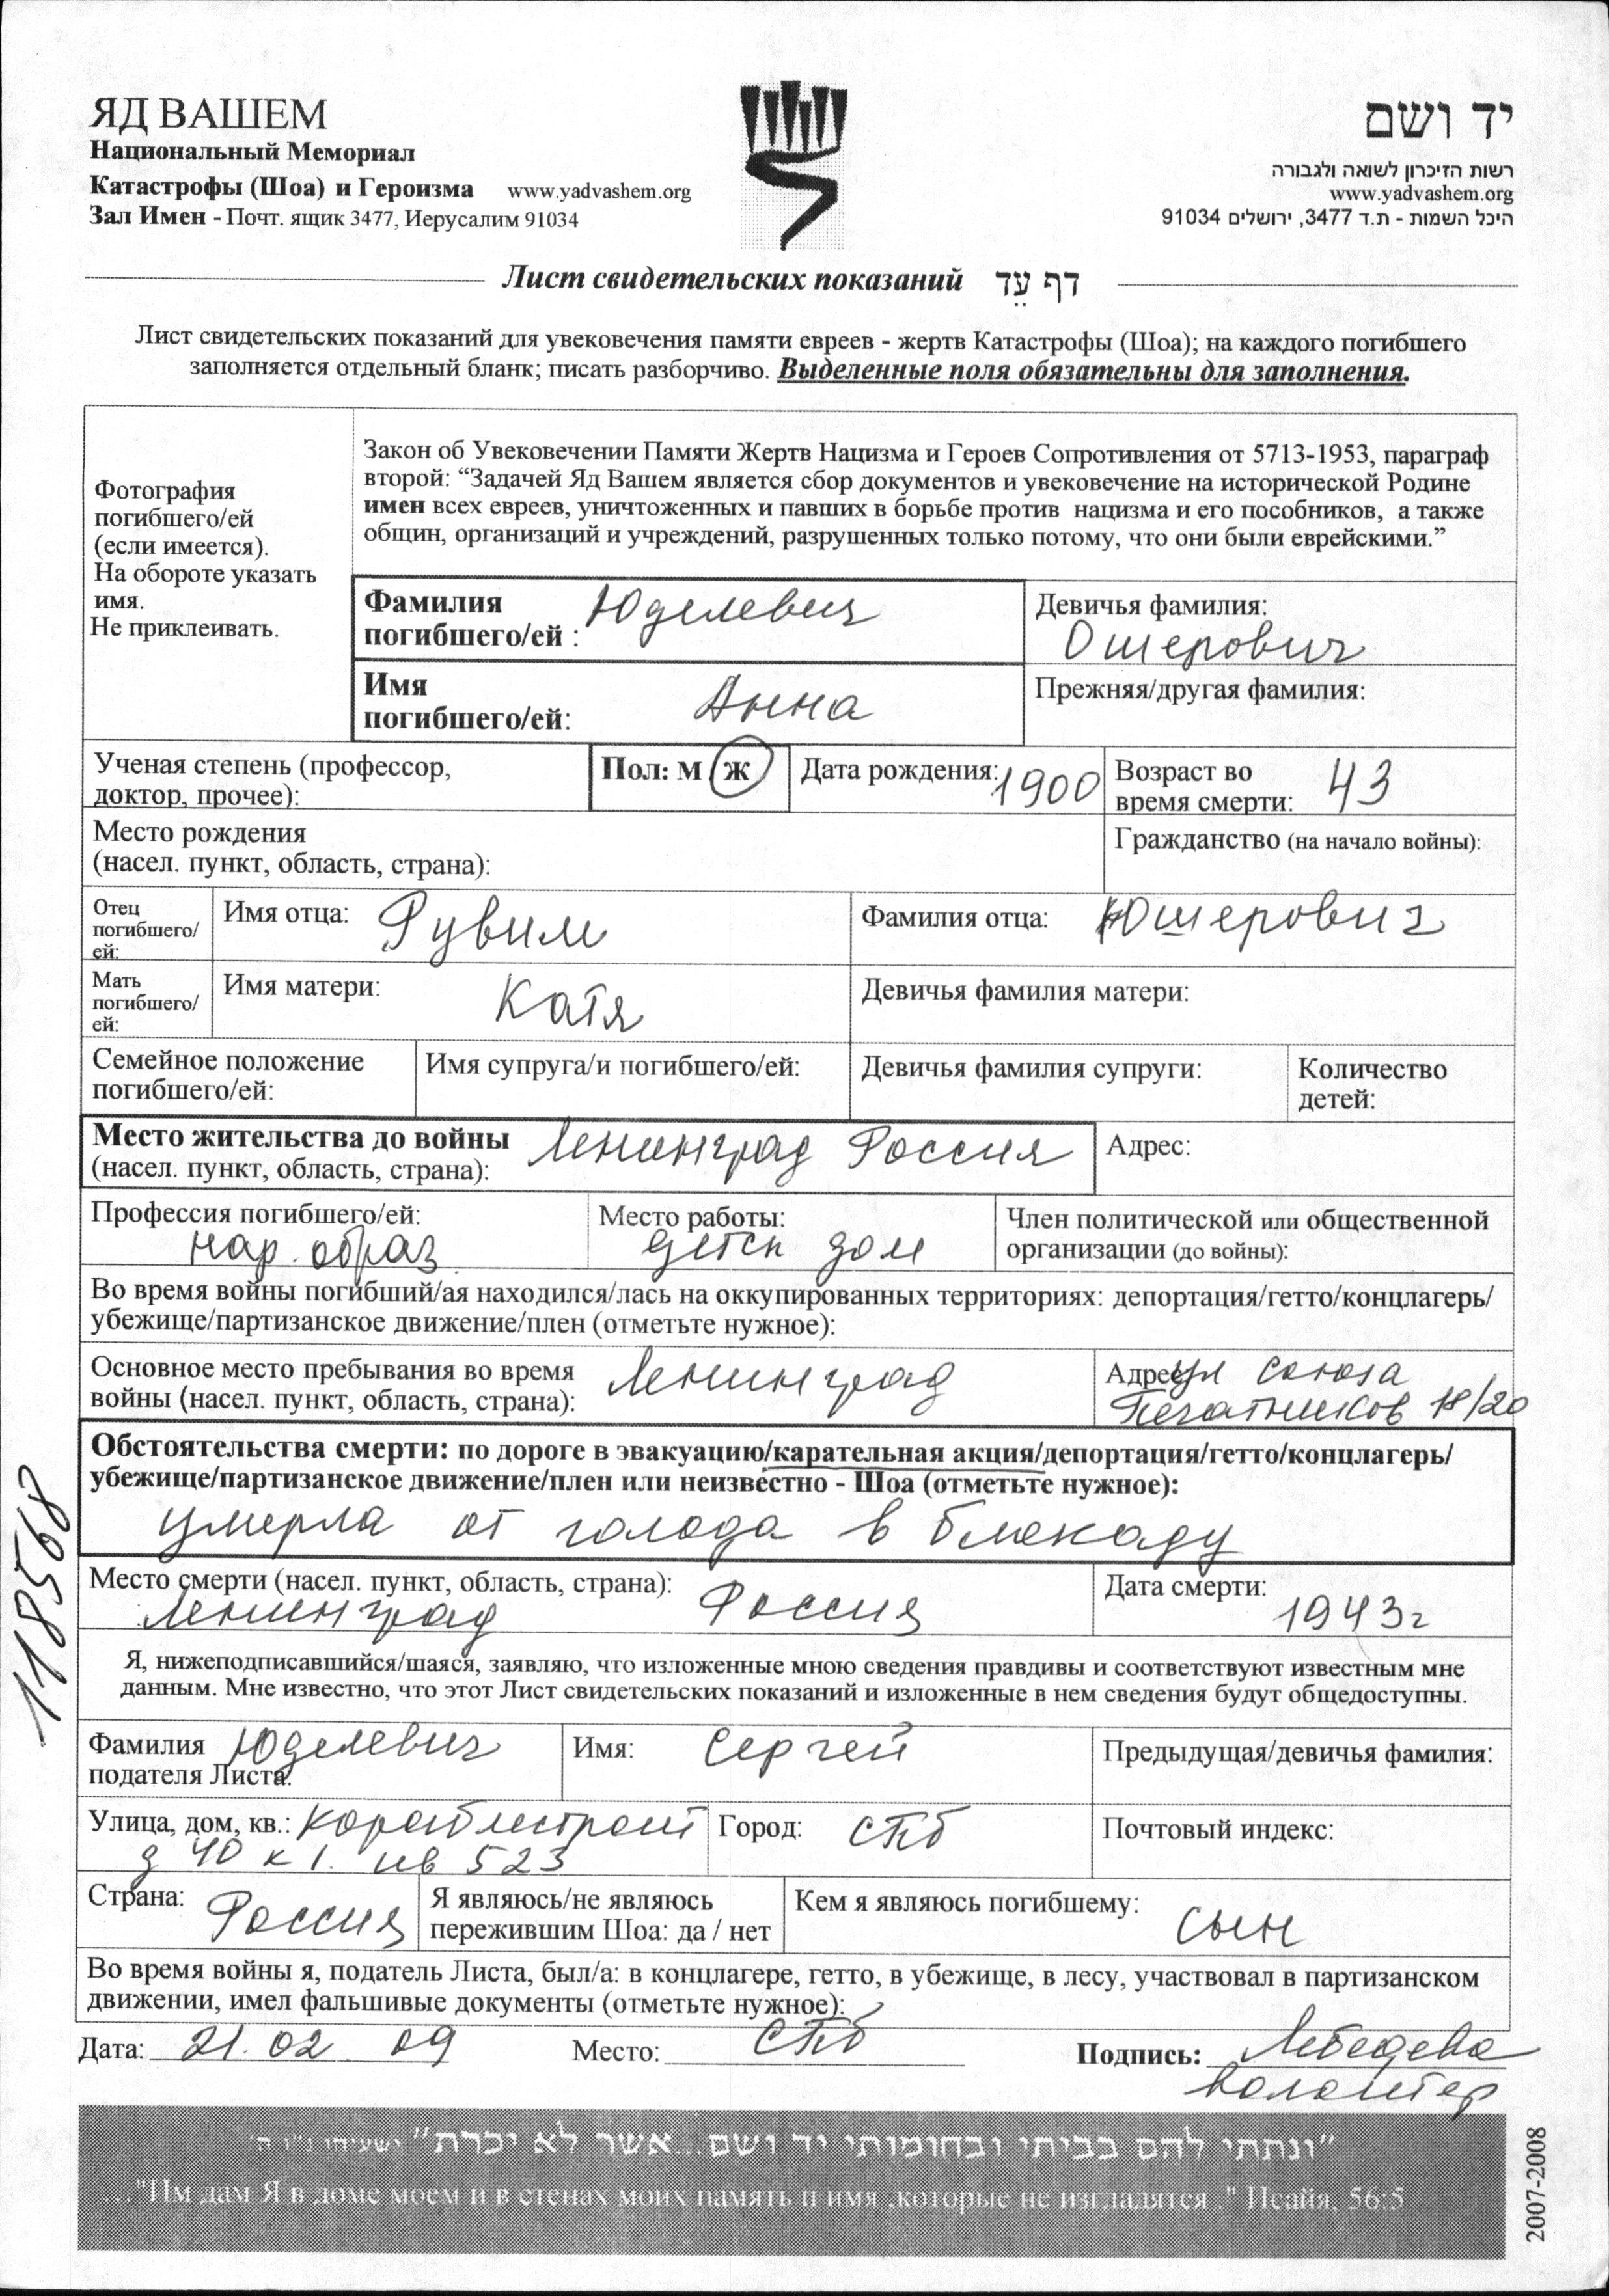 ЯД ВАШЕМ
Национальный Мемориал
Катастрофы (Шоа) и Героизма www.yadvashem.org
Зал Имен - Почт. ящик 3477, Иерусалим 91034
יד ושם
רשות הזיכרון לשואה ולגבורה
www.yadvashem.org
היכל השמות - ת.ד 3477, ירושלים 91034
Лист свидетельских показаний דף עֵד
Лист свидетельских показаний для увековечения памяти евреев - жертв Катастрофы (Шоа); на каждого погибшего
заполняется отдельный бланк; писать разборчиво. Выделенные поля обязательны для заполнения.
Фотография
погибшего/ей
(если имеется).
На обороте указать
имя.
Не приклеивать.
Закон об Увековечении Памяти Жертв Нацизма и Героев Сопротивления от 5713-1953, параграф
второй: “Задачей Яд Вашем является сбор документов и увековечение на исторической Родине
имен всех евреев, уничтоженных и павших в борьбе против нацизма и его пособников, а также
общин, организаций и учреждений, разрушенных только потому, что они были еврейскими.”
Фамилия
погибшего/ей : Юделевич
Девичья фамилия:
Ошерович
Имя
погибшего/ей: Анна
Прежняя/другая фамилия:
Ученая степень (профессор,
доктор, прочее):
Пол: М Ж
Дата рождения: 1900
Возраст во
время смерти: 43
Место рождения
(насел. пункт, область, страна):
Гражданство (на начало войны):
Отец
погибшего/
ей:
Имя отца: Рувим
Фамилия отца: Юшерович
Мать
погибшего/
ей:
Имя матери: Катя
Девичья фамилия матери:
Семейное положение
погибшего/ей:
Имя супруга/и погибшего/ей:
Девичья фамилия супруги:
Количество
детей:
Место жительства до войны
(насел. пункт, область, страна): Ленинград Россия
Адрес:
Профессия погибшего/ей:
нар. образ
Место работы:
детск дом
Член политической или общественной
организации (до войны):
Во время войны погибший/ая находился/лась на оккупированных территориях: депортация/гетто/концлагерь/
убежище/партизанское движение/плен (отметьте нужное):
Основное место пребывания во время
войны (насел. пункт, область, страна): Ленинград
Адрес: ул Союза
Печатников 18/20
Обстоятельства смерти: по дороге в эвакуацию/карательная акция/депортация/гетто/концлагерь/
убежище/партизанское движение/плен или неизвестно - Шоа (отметьте нужное):
умерла от голода в блокаду
Место смерти (насел. пункт, область, страна):
Ленинград Россия
Дата смерти:
1943г
Я, нижеподписавшийся/шаяся, заявляю, что изложенные мною сведения правдивы и соответствуют известным мне
данным. Мне известно, что этот Лист свидетельских показаний и изложенные в нем сведения будут общедоступны.
Фамилия
подателя Листа: Юделевич
Имя: Сергей
Предыдущая/девичья фамилия:
Улица, дом, кв.: Кораблестроит
д 40 к 1. кв 523
Город: СПб
Почтовый индекс:
Страна: Россия
Я являюсь/не являюсь
пережившим Шоа: да / нет
Кем я являюсь погибшему:
сын
Во время войны я, податель Листа, был/а: в концлагере, гетто, в убежище, в лесу, участвовал в партизанском
движении, имел фальшивые документы (отметьте нужное):
Дата: 21.02.09 Место: СПб Подпись: Лебедева
волонтер
"ונתתי להם בביתי ובחומותי יד ושם...אשר לא יכרת" ישעיהו נ"ו ה'
..."Им дам Я в доме моем и в стенах моих память и имя ,которые не изгладятся ." Исайя, 56:5
118568
2007-2008